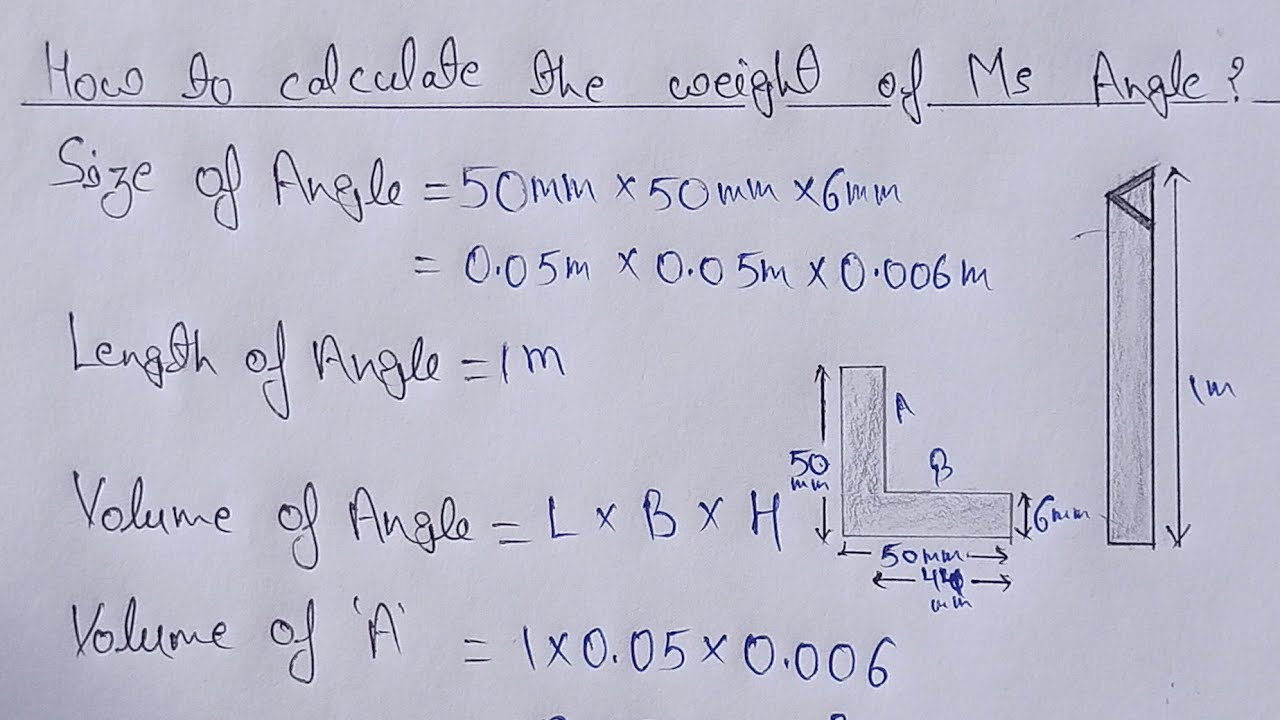 How to calculate the weight of Ms Angle?
Size of Angle = 50mm × 50mm × 6mm
= 0.05m × 0.05m × 0.006m
Length of Angle = 1m
1m
A
B
50
mm
6mm
50mm
44
mm
Volume of Angle = L × B × H
Volume of 'A' = 1 × 0.05 × 0.006